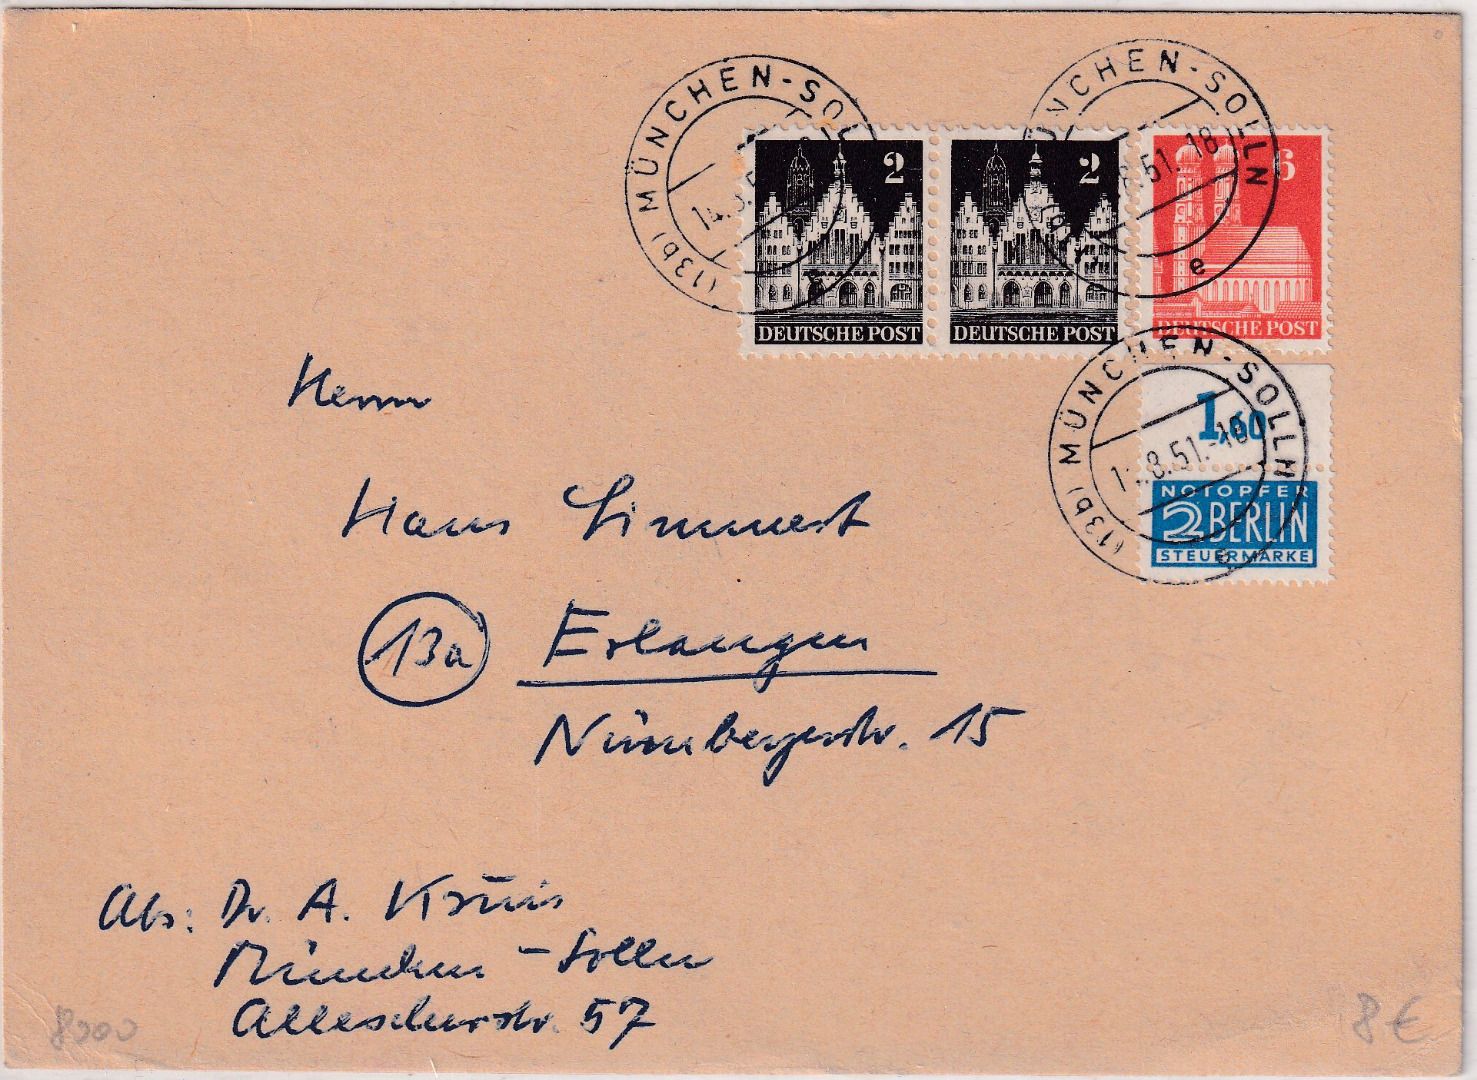 (13b) MÜNCHEN-SOL
14.8.5
e
MÜNCHEN-SOLLN
8.51.-18
e
2
DEUTSCHE POST
2
DEUTSCHE POST
6
DEUTSCHE POST
1,60
(13b) MÜNCHEN-SOLLN
8.51.-18
e
NOTOPFER
2 BERLIN
STEUERMARKE
Herrn
Hans Limmert
13a Erlangen
Nürnbergerstr. 15
Abs: Dr. A. Kruis
München-Solln
Allescherstr. 57
8000
8 €